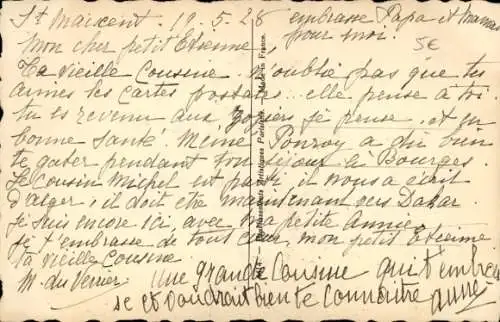 St Maixent 19.5.28
embrasse Papa et Maman
pour moi.
5€
Mon cher petit Etienne,
Ta vieille Cousine n'oublie pas que tu
aimes les cartes postales.. elle pense à toi.
tu es revenu aux je pense et en
bonne santé. Mémé Ponroy a dû bien
te gâter pendant ton séjour à Bourges.
Le cousin Michel est parti, il nous a écrit
d'alger, il doit être maintenant vers Dakar
je suis encore ici, avec ma petite Annie,
je t'embrasse de tout cœur, mon petit Etienne
ta vieille Cousine
M. du Verrier
une grande Cousine qui t'embras
se et voudrait bien te connaître
Made in France.